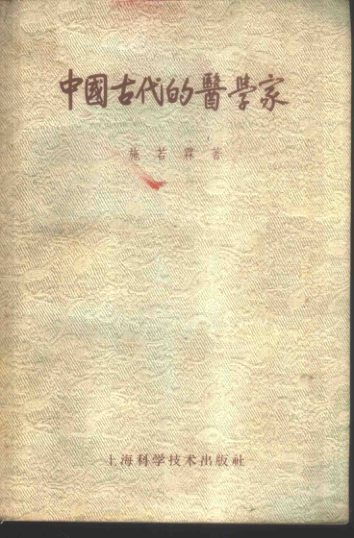 中國古代的醫學家
施若霖著
上海科学技术出版社